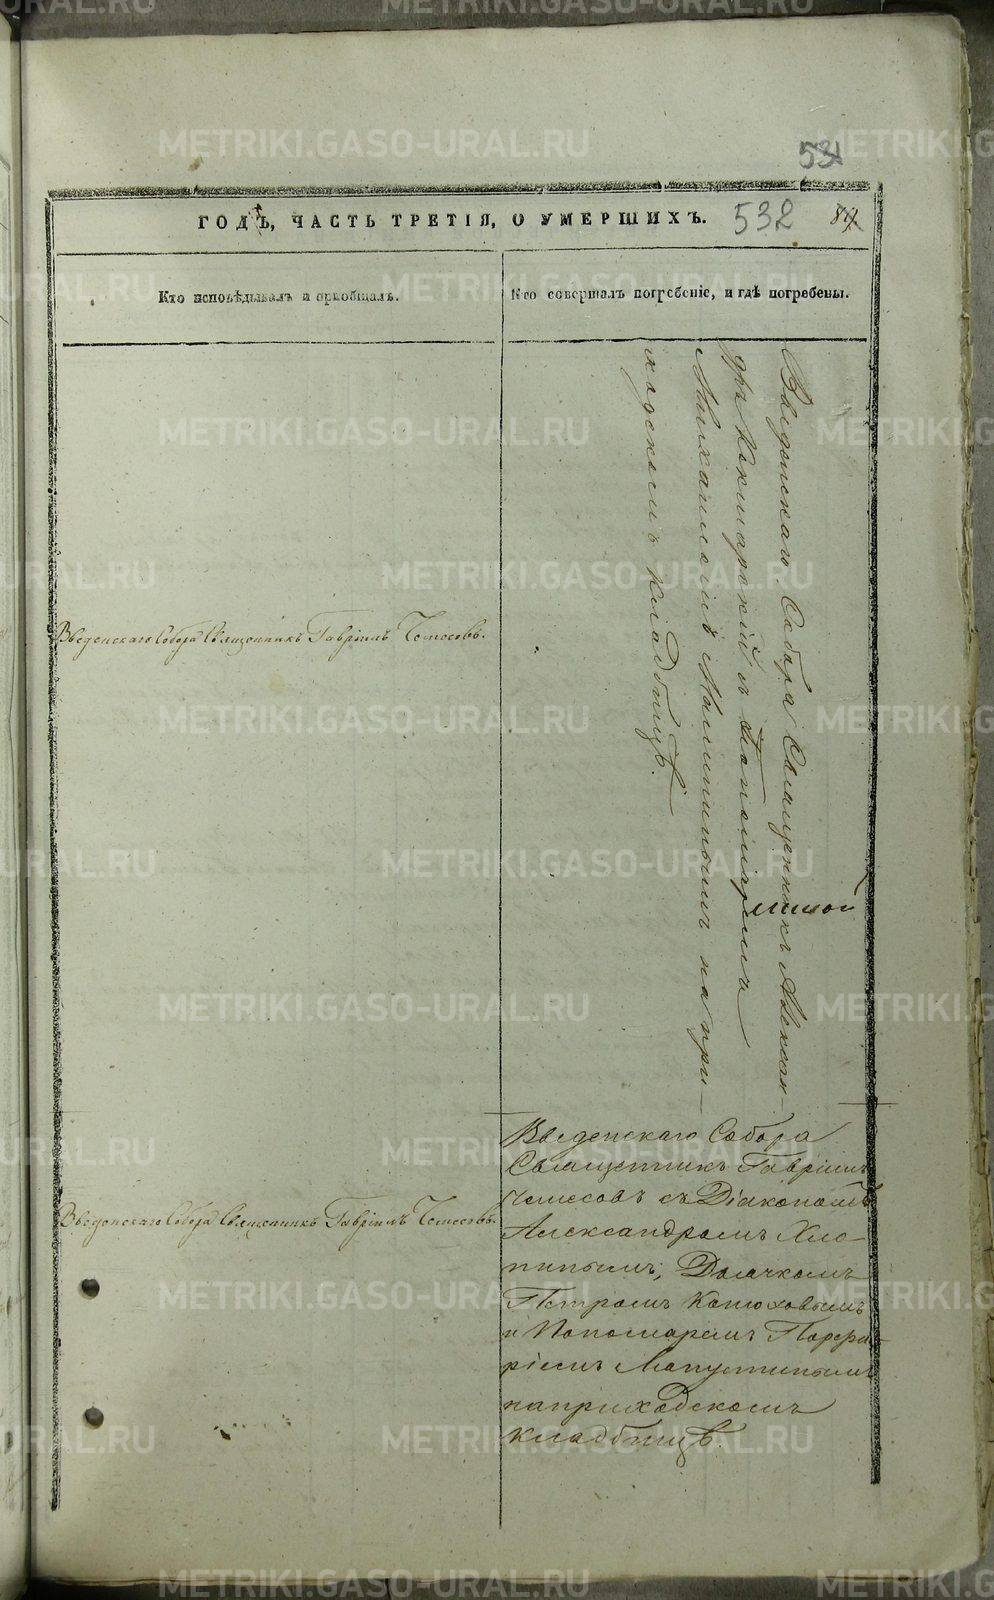 531
532 84
ГОДѢ, ЧАСТЬ ТРЕТІЯ, О УМЕРШИХЪ.
Кто исповѣдывалъ и пріобщалъ.
Кто совершалъ погребеніе, и гдѣ погребены.
Введенскаго Собора Священникъ Гавріилъ
Введенскаго Собора Священникъ Алексан-
дръ с Пономаремъ
Михаиломъ на при-
ходскомъ кладбищѣ.
Введенскаго Собора Священникъ Гавріилъ
Введенскаго Собора
Священникъ Гавріилъ
съ Діакономъ
Александромъ Хло-
пинымъ, Дьячкомъ
Петромъ Конюховымъ
и Пономаремъ Порфи-
ріемъ
на приходскомъ
кладбищѣ.
METRIKI.GASO-URAL.RU